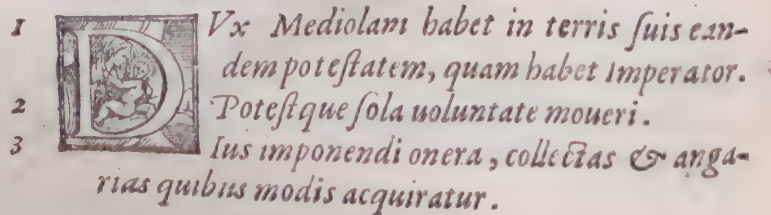 1 DVx Mediolani habet in terris ſuis ean-
dem poteſtatem, quam habet Imperator.
2 Poteſtque ſola uoluntate moueri.
3 Ius imponendi onera, collectas & anga-
rias quibus modis acquiratur.